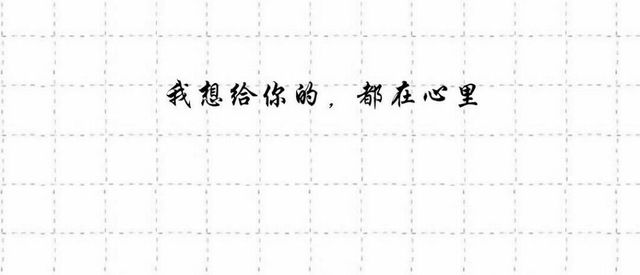 我想给你的，都在心里